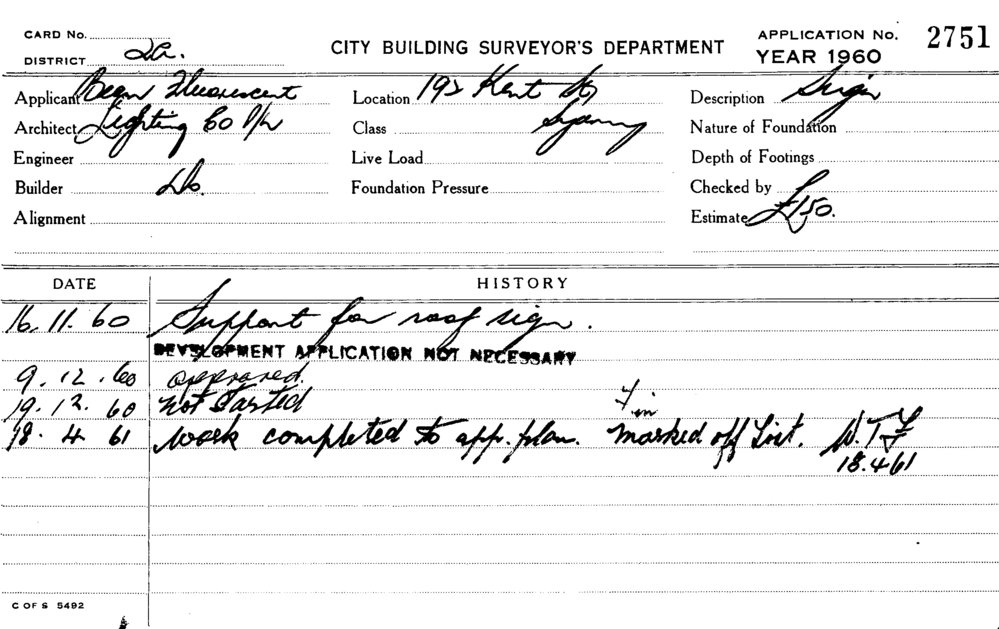 CARD No.
DISTRICT 2a.
CITY BUILDING SURVEYOR'S DEPARTMENT
APPLICATION No. 2751
YEAR 1960
Applicant Bean Fluorescent
Location 192 Kent St
Description Sign
Architect Lighting Co P/L
Class Sydney
Nature of Foundation
Engineer
Live Load
Depth of Footings
Builder Do.
Foundation Pressure
Checked by
Alignment
Estimate £150.
DATE HISTORY
16.11.60 Support for roof sign.
DEVELOPMENT APPLICATION NOT NECESSARY
9.12.60 approved.
19.12.60 Not Started
18.4.61 Work completed to app. plan. Marked off List.
18.4.61
C OF S 5492